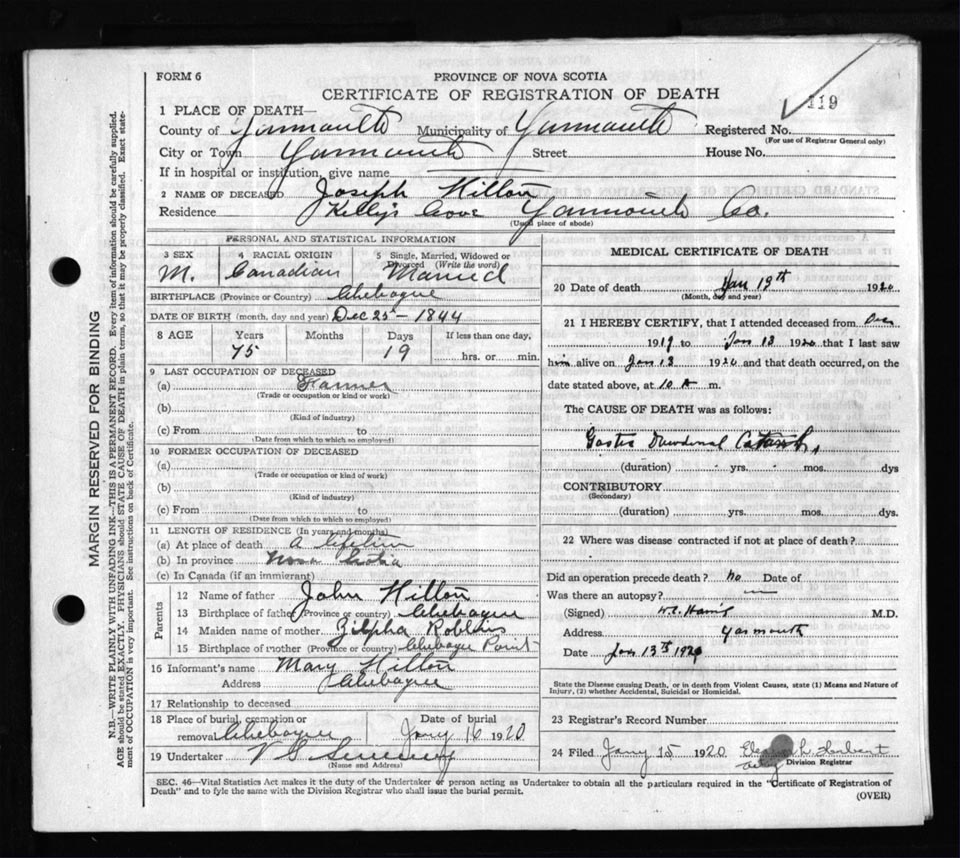 FORM 6
PROVINCE OF NOVA SCOTIA
CERTIFICATE OF REGISTRATION OF DEATH
119
1 PLACE OF DEATH—
County of Yarmouth Municipality of Yarmouth Registered No.
(For use of Registrar General only)
City or Town Yarmouth Street House No.
If in hospital or institution, give name
2 NAME OF DECEASED Joseph Hilton
Residence Kelly's Cove Yarmouth Co.
(Usual place of abode)
PERSONAL AND STATISTICAL INFORMATION
3 SEX M.
4 RACIAL ORIGIN Canadian
5 Single, Married, Widowed or Divorced (Write the word) Married
BIRTHPLACE (Province or Country) Chebogue
DATE OF BIRTH (month, day and year) Dec 25 - 1844
8 AGE Years Months Days If less than one day,
75 19 hrs. or min.
9 LAST OCCUPATION OF DECEASED
(a) Farmer
(Trade or occupation or kind or work)
(b)
(Kind of industry)
(c) From to
(Date from which to which so employed)
10 FORMER OCCUPATION OF DECEASED
(a)
(Trade or occupation or kind or work)
(b)
(Kind of industry)
(c) From to
(Date from which to which so employed)
11 LENGTH OF RESIDENCE (In years and months)
(a) At place of death a lifetime
(b) In province Nova Scotia
(c) In Canada (if an immigrant)
Parents
12 Name of father John Hilton
13 Birthplace of father (Province or country) Chebogue
14 Maiden name of mother Zilpha Robbins
15 Birthplace of mother (Province or country) Chebogue Point
16 Informant's name Mary Hilton
Address Chebogue
17 Relationship to deceased
18 Place of burial, cremation or removal Chebogue Date of burial Jany 16 1920
19 Undertaker V S Sweeney
(Name and Address)
MEDICAL CERTIFICATE OF DEATH
20 Date of death Jan 13th 1920
(Month, day and year)
21 I HEREBY CERTIFY, that I attended deceased from Dec
1919 to Jan 13 1920 that I last saw
him alive on Jan 13 1920 and that death occurred, on the
date stated above, at 10 A m.
The CAUSE OF DEATH was as follows:
Gastro Duodenal Catarrh
(duration) yrs. mos. dys
CONTRIBUTORY
(Secondary)
(duration) yrs. mos. dys.
22 Where was disease contracted if not at place of death?
Did an operation precede death? no Date of
Was there an autopsy?
(Signed) Harris M.D.
Address Yarmouth
Date Jan 13th 1920
State the Disease causing Death, or in death from Violent Causes, state (1) Means and Nature of
Injury, (2) whether Accidental, Suicidal or Homicidal.
23 Registrar's Record Number
24 Filed Jany 15 1920
Division Registrar
SEC. 46—Vital Statistics Act makes it the duty of the Undertaker or person acting as Undertaker to obtain all the particulars required in the "Certificate of Registration of
Death" and to fyle the same with the Division Registrar who shall issue the burial permit.
(OVER)
MARGIN RESERVED FOR BINDING
N.B.—WRITE PLAINLY WITH UNFADING INK—THIS IS A PERMANENT RECORD. Every item of information should be carefully supplied.
AGE should be stated EXACTLY. PHYSICIANS should STATE CAUSE OF DEATH in plain terms, so that it may be properly classified. Exact state-
ment of OCCUPATION is very important. See instructions on back of Certificate.